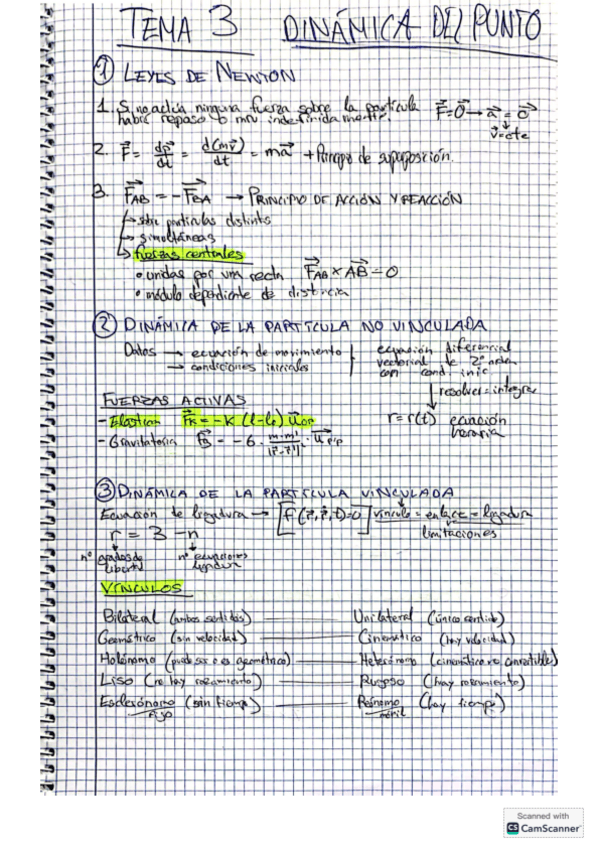 TEMA 3 DINÁMICA DEL PUNTO
① LEYES DE NEWTON
1. Si no actúa ninguna fuerza sobre la partícula F⃗=0⃗ → a⃗ = 0⃗
habrá reposo o mru indefinidamente. v⃗=cte
2. F⃗ = dp⃗/dt = d(mv⃗)/dt = ma⃗ + Principio de superposición.
3. F⃗AB = -F⃗BA → PRINCIPIO DE ACCIÓN Y REACCIÓN
↳ sobre partículas distintas
↳ simultáneas
↳ fuerzas centrales
• unidas por una recta F⃗AB × AB⃗ = 0
• módulo dependiente de distancia
② DINÁMICA DE LA PARTÍCULA NO VINCULADA
Datos → ecuación de movimiento
→ condiciones iniciales
ecuación diferencial
vectorial de 2º orden
con cond. inic
↓ resolver = integrar
r = r(t) ecuación
horaria
FUERZAS ACTIVAS
- Elástica F⃗K = -K (l-l₀) u⃗OP
- Gravitatoria F⃗G = -G · m·m'/|r⃗-r⃗'|² · u⃗P'P
③ DINÁMICA DE LA PARTÍCULA VINCULADA
Ecuación de ligadura → [f(r⃗,ṙ⃗,t)=0] vínculo = enlace = ligadura
limitaciones
r = 3 - n
nº grados de libertad
nº ecuaciones ligadura
VÍNCULOS
Bilateral (ambos sentidos) — Unilateral (único sentido)
Geométrico (sin velocidad) — Cinemático (hay velocidad)
Holónomo (puede ser o es geométrico) — Heterónomo (cinemático no convertible)
Liso (no hay rozamiento) — Rugoso (hay rozamiento)
Esclerónomo (sin tiempo) — Reónomo (hay tiempo)
Fijo móvil
Scanned with
CS CamScanner